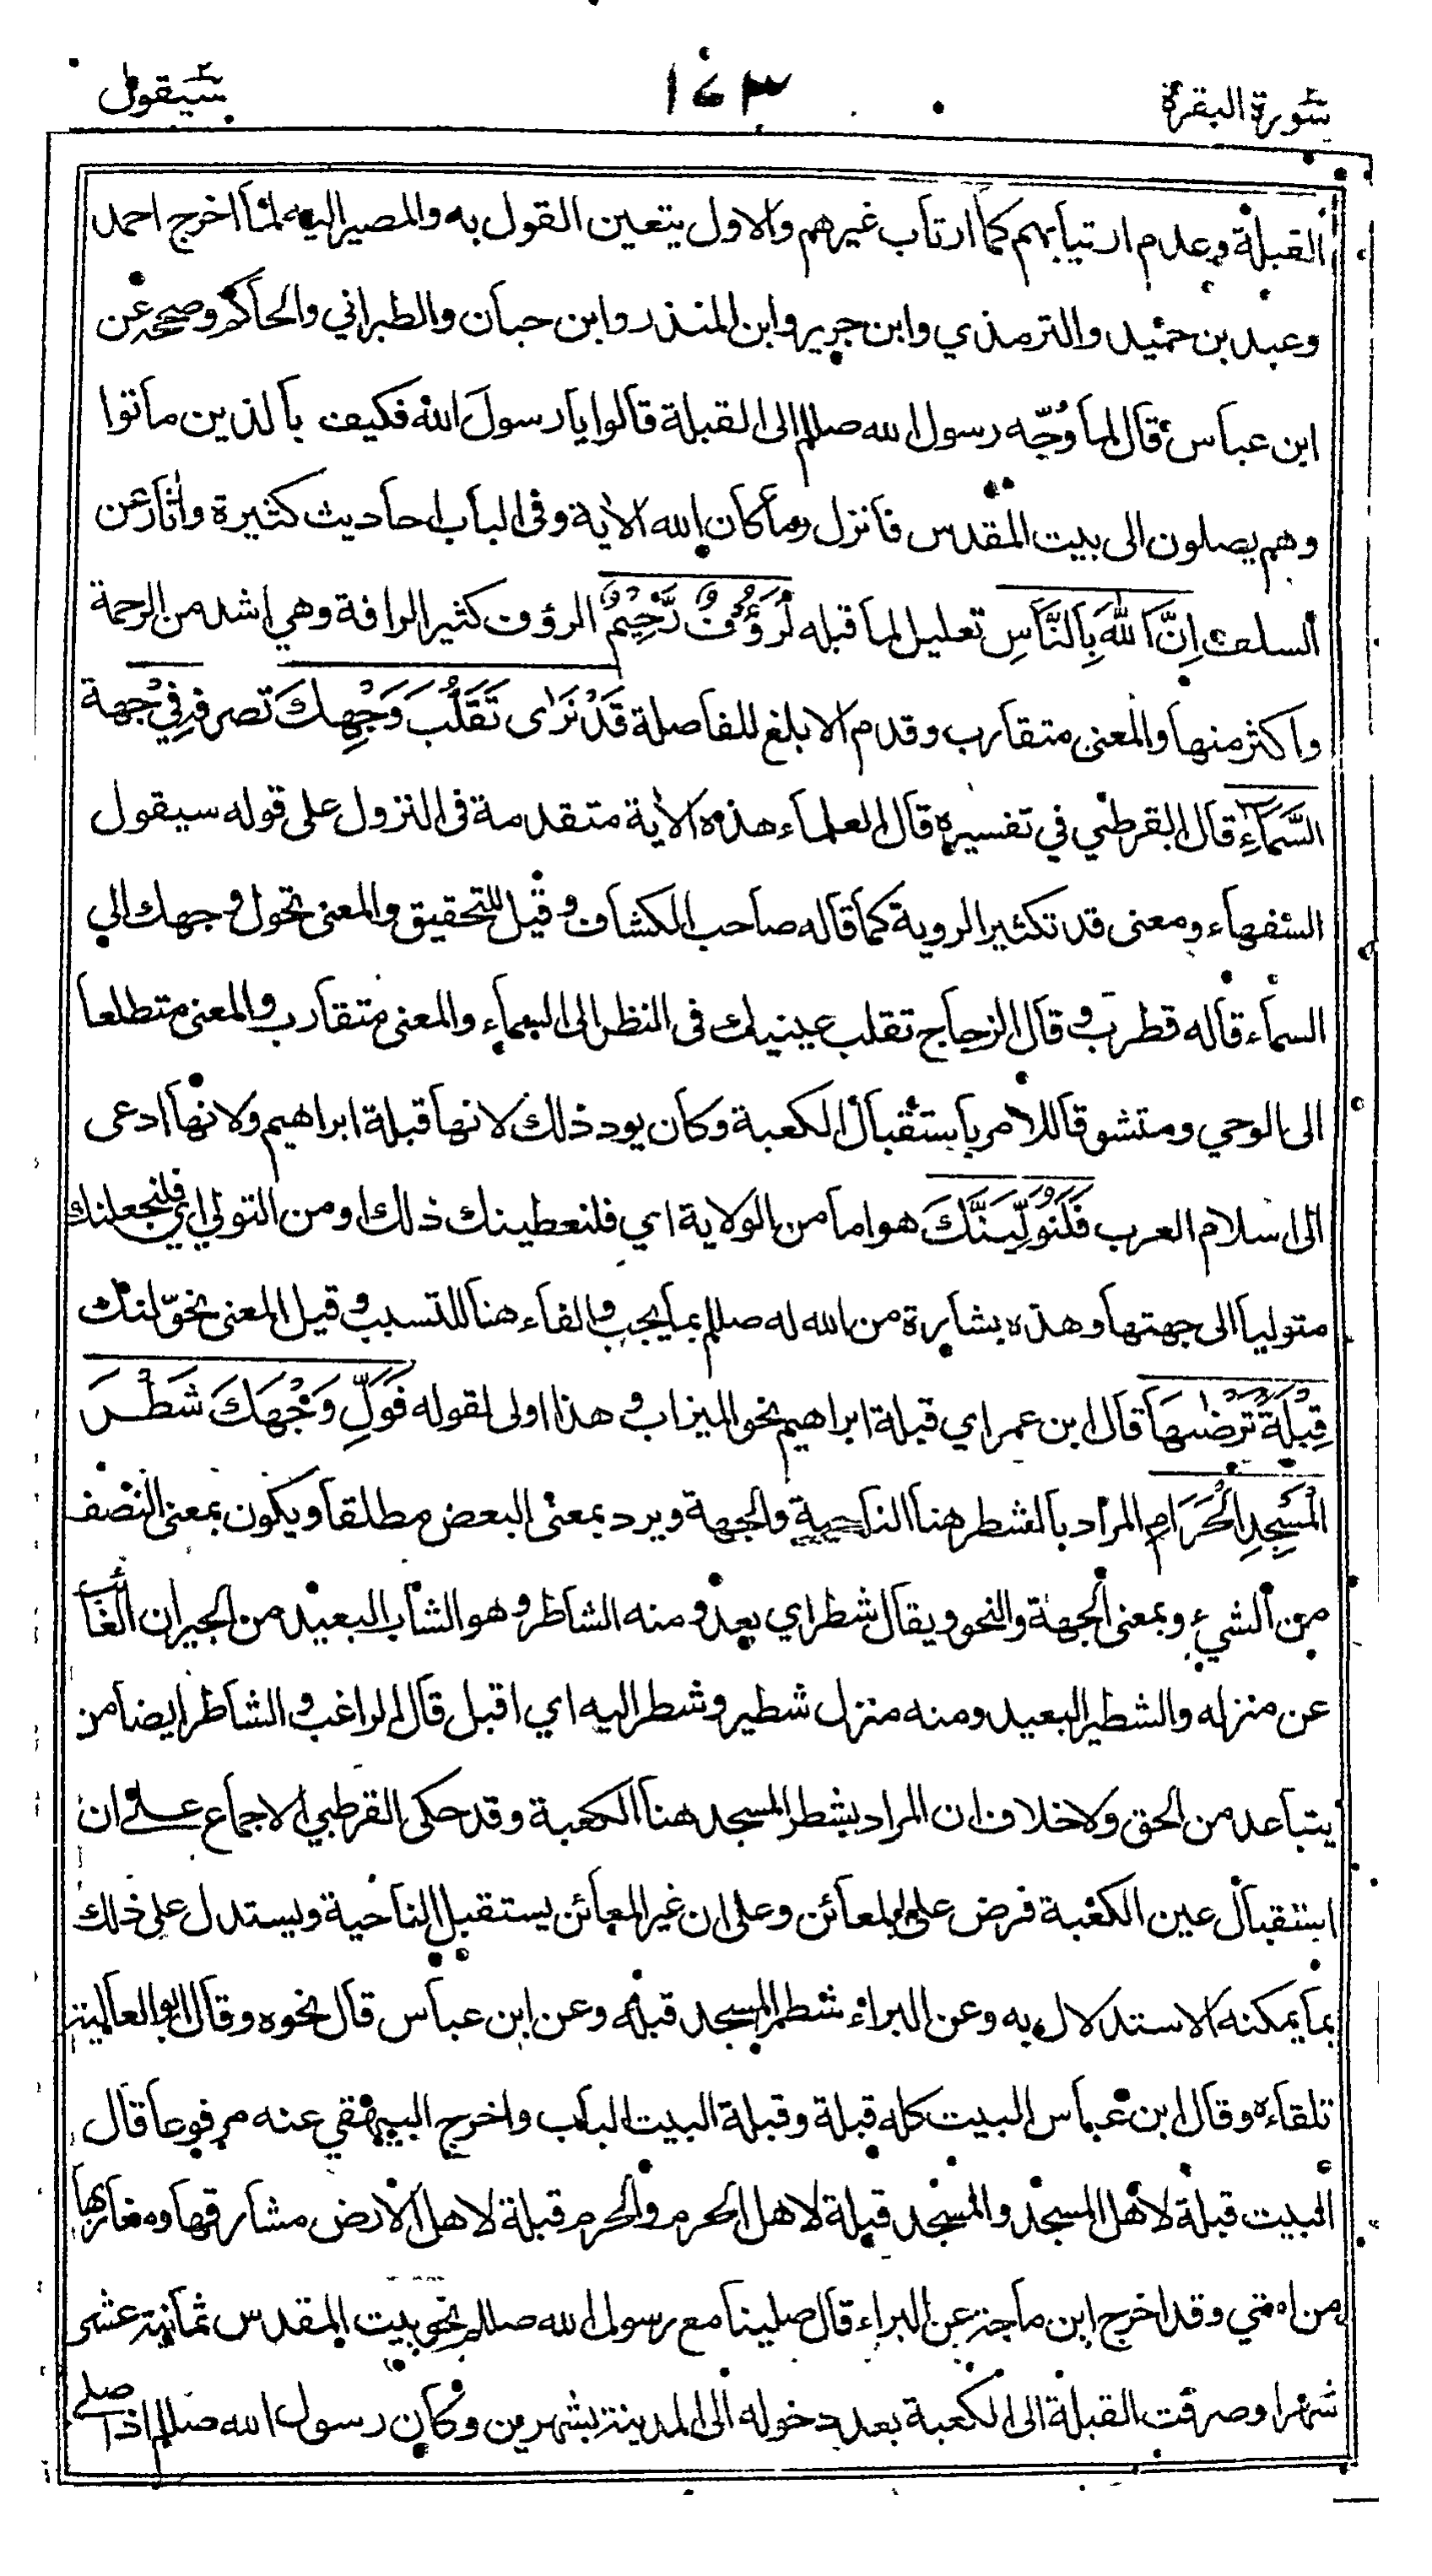 سورة البقرة ١٤٣ سيقول
القبلة وعدم ارتيابهم كما ارتاب غيرهم والاول يتعين القول به والمصير اليه لما اخرج احمد
وعبد بن حميد والترمذي وابن جرير وابن المنذر وابن حبان والطبراني والحاكم وصححه عن
ابن عباس قال لما وُجّه رسول الله صللم الى القبلة قالوا يا رسول الله فكيف بالذين ماتوا
وهم يصلون الى بيت المقدس فانزل وما كان الله الاٰية وفي الباب احاديث كثيرة واٰثار عن
السلف اِنَّ اللّٰهَ بِالنَّاسِ تعليل لما قبله لَرَؤُفٌ رَّحِيْمٌ الرؤف كثير الرافة وهي اشد من الرحمة
واكثر منها والمعنى متقارب وقدم الابلغ للفاصلة قَدْ نَرٰى تَقَلُّبَ وَجْهِكَ تصرف فِيْ جهة
السَّمَآءِ قال القرطبي في تفسيره قال العلماء هذه الاٰية متقدمة في النزول على قوله سيقول
السفهاء ومعنى قد تكثير الروية كما قاله صاحب الكشاف وقيل للتحقيق والمعنى تحول وجهك الى
السماء قاله قطرب وقال الزجاج تقلب عينيك في النظر الى السماء والمعنى متقارب والمعنى متطلعا
الى الوحي ومتشوقا للامر باستقبال الكعبة وكان يود ذلك لانها قبلة ابراهيم ولانها ادعى
الى اسلام العرب فَلَنُوَلِّيَنَّكَ هو اما من الولاية اي فلنعطينك ذلك او من التولي اي فلنجعلنك
متوليا الى جهتها وهذه بشارة من الله له صللم بما يحب والفاء هنا للتسبب وقيل المعنى نحوّلنك
قِبْلَةً تَرْضٰىهَا قال ابن عمر اي قبلة ابراهيم نحو الميزاب وهذا اولى لقوله فَوَلِّ وَجْهَكَ شَطْرَ
الْمَسْجِدِ الْحَرَامِ المراد بالشطر هنا الناحية والجهة ويرد بمعنى البعض مطلقا ويكون بمعنى النصف
من الشيء وبمعنى الجهة والنحو ويقال شطر اي بعد ومنه الشاطر وهو الشاب البعيد من الجيران الغائب
عن منزله والشطير البعيد ومنه منزل شطير وشطر اليه اي اقبل قال الراغب والشاطر ايضا من
يتباعد من الحق ولا خلاف ان المراد بشطر المسجد هنا الكعبة وقد حكى القرطبي الاجماع على ان
استقبال عين الكعبة فرض على المعائن وعلى ان غير المعائن يستقبل الناحية ويستدل على ذلك
بما يمكنه الاستدلال به وعن البراء شطر المسجد قبله وعن ابن عباس قال نحوه وقال ابو العالية
تلقاءه وقال ابن عباس البيت كله قبلة وقبلة البيت الباب واخرج البيهقي عنه مرفوعا قال
البيت قبلة لاهل المسجد والمسجد قبلة لاهل الحرم والحرم قبلة لاهل الارض مشارقها ومغاربها
من امتي وقد اخرج ابن ماجة عن البراء قال صلينا مع رسول الله صللم نحو بيت المقدس ثمانية عشر
شهرا وصرفت القبلة الى الكعبة بعد دخوله الى المدينة بشهرين وكان رسول الله صللم اذا صلى